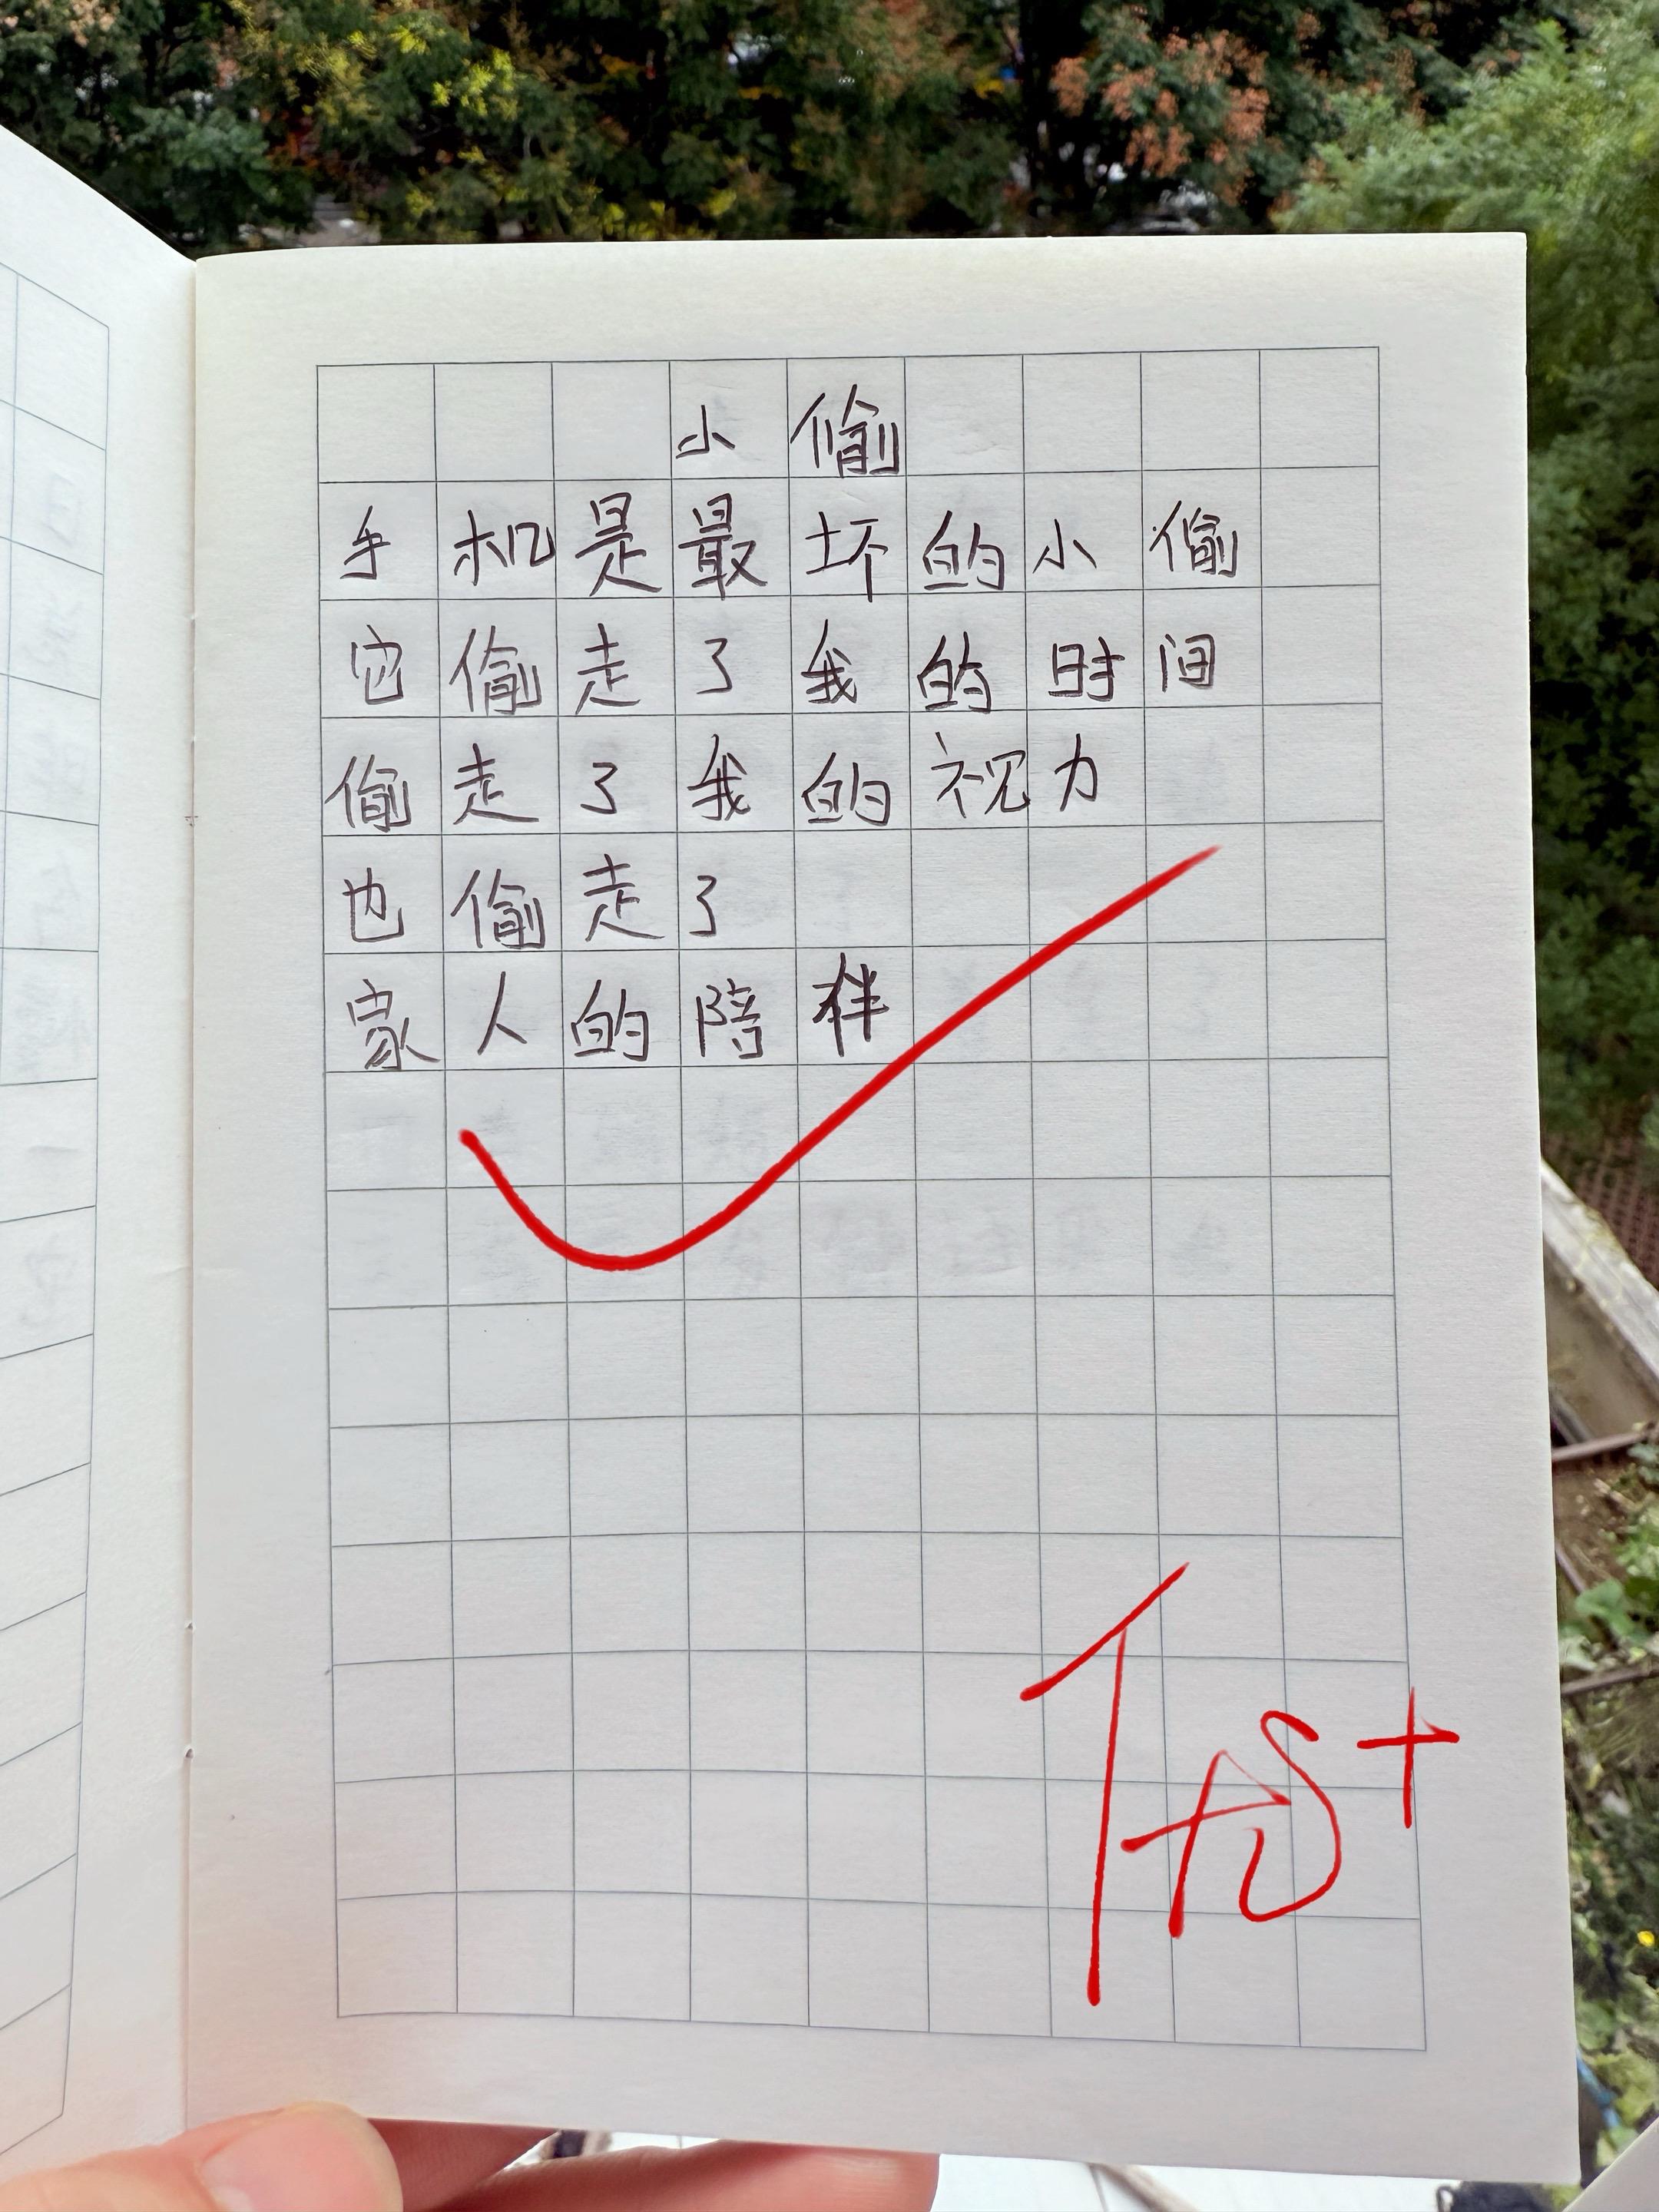 小偷
手机是最坏的小偷
它偷走了我的时间
偷走了我的视力
也偷走了
家人的陪伴